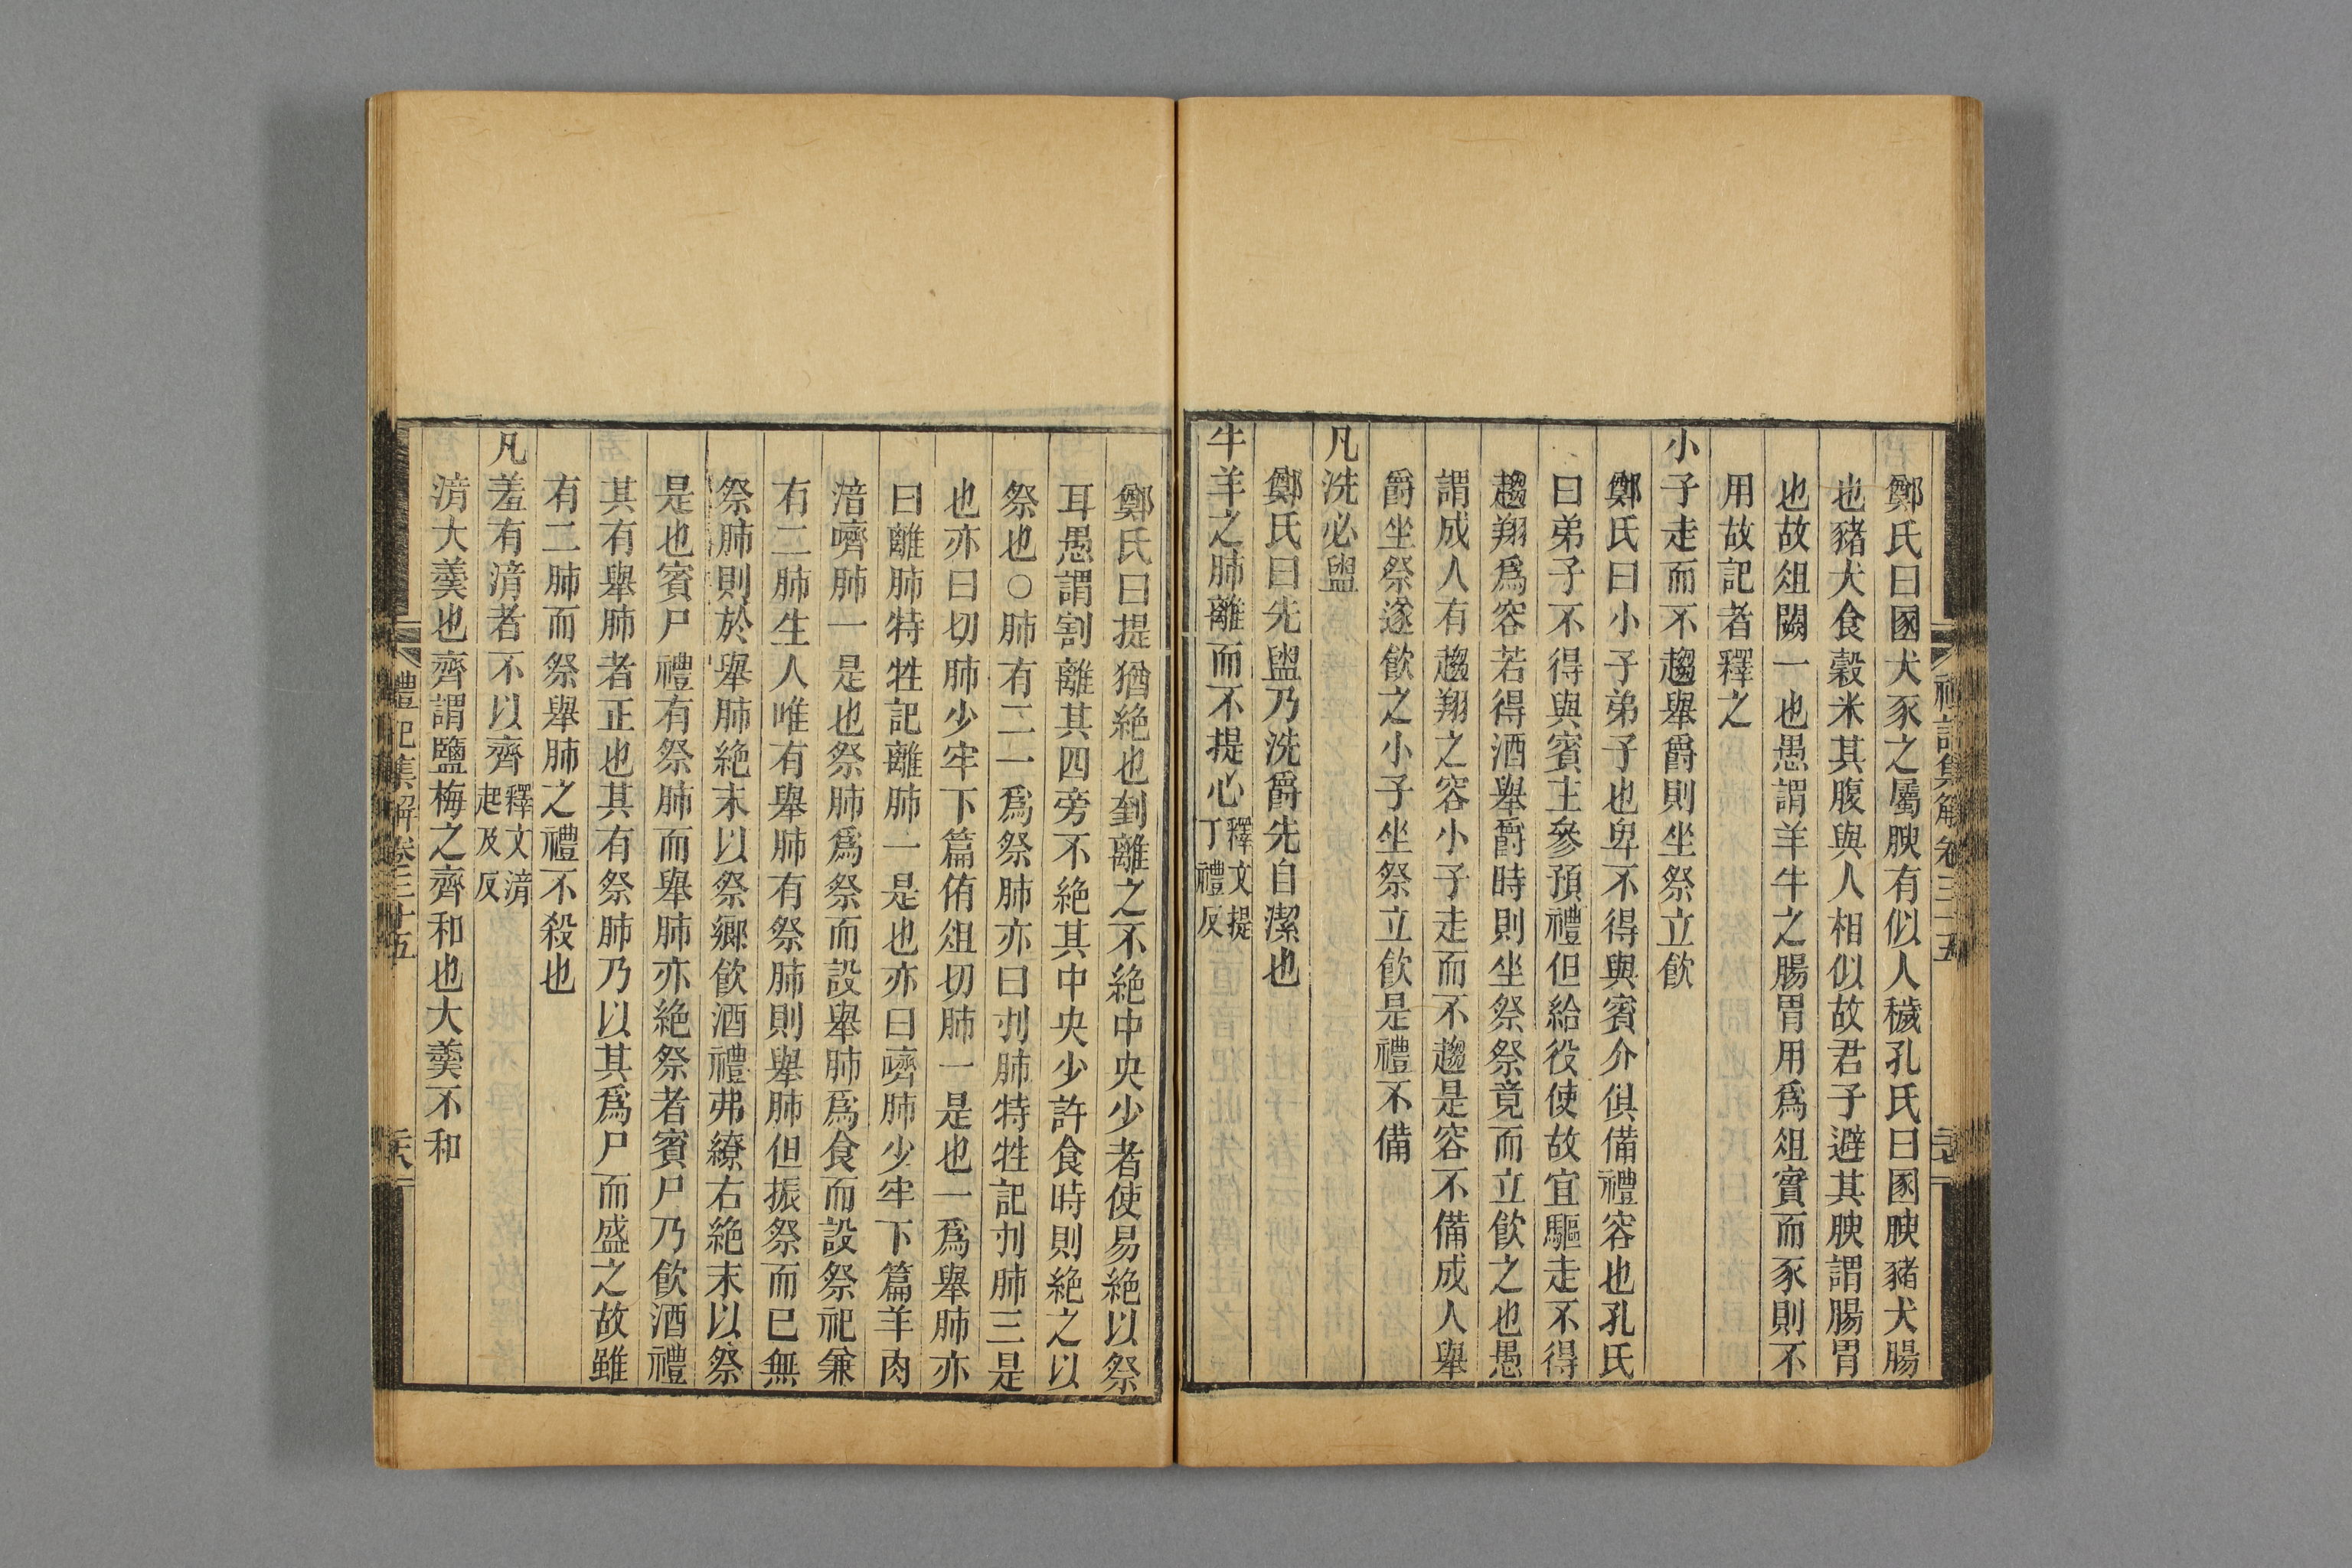 禮記集解卷三十五
鄭氏曰圂犬豕之屬腴有似人穢孔氏曰圂腴豬犬腸
也豬犬食穀米其腹與人相似故君子避其腴謂腸胃
也故俎闕一也愚謂羊牛之腸胃用爲俎實而豕則不
用故記者釋之
小子走而不趨舉爵則坐祭立飲
鄭氏曰小子弟子也卑不得與賓介俱備禮容也孔氏
曰弟子不得與賓主參預禮但給役使故宜驅走不得
趨翔爲容若得酒舉爵時則坐祭祭竟而立飲之也愚
謂成人有趨翔之容小子走而不趨是容不備成人舉
爵坐祭遂飲之小子坐祭立飲是禮不備
凡洗必盥
鄭氏曰先盥乃洗爵先自潔也
牛羊之肺離而不提心釋文提丁禮反
鄭氏曰提猶絕也刲離之不絕中央少者使易絕以祭
耳愚謂割離其四旁不絕其中央少許食時則絕之以
祭也○肺有二一爲祭肺亦曰刌肺特牲記刌肺三是
也亦曰切肺少牢下篇侑俎切肺一是也一爲舉肺亦
曰離肺特牲記離肺一是也亦曰嚌肺少牢下篇羊肉
湆嚌肺一是也祭肺爲祭而設舉肺爲食而設祭祀兼
有二肺生人唯有舉肺有祭肺則舉肺但振祭而已無
祭肺則於舉肺絕末以祭鄉飲酒禮弗繚右絕末以祭
是也賓尸禮有祭肺而舉肺亦絕祭者賓尸乃飲酒禮
其有舉肺者正也其有祭肺乃以其爲尸而盛之故雖
有二肺而祭舉肺之禮不殺也
凡羞有湆者不以齊釋文湆起及反
湆大羹也齊謂鹽梅之齊和也大羹不和
禮記集解卷三十五